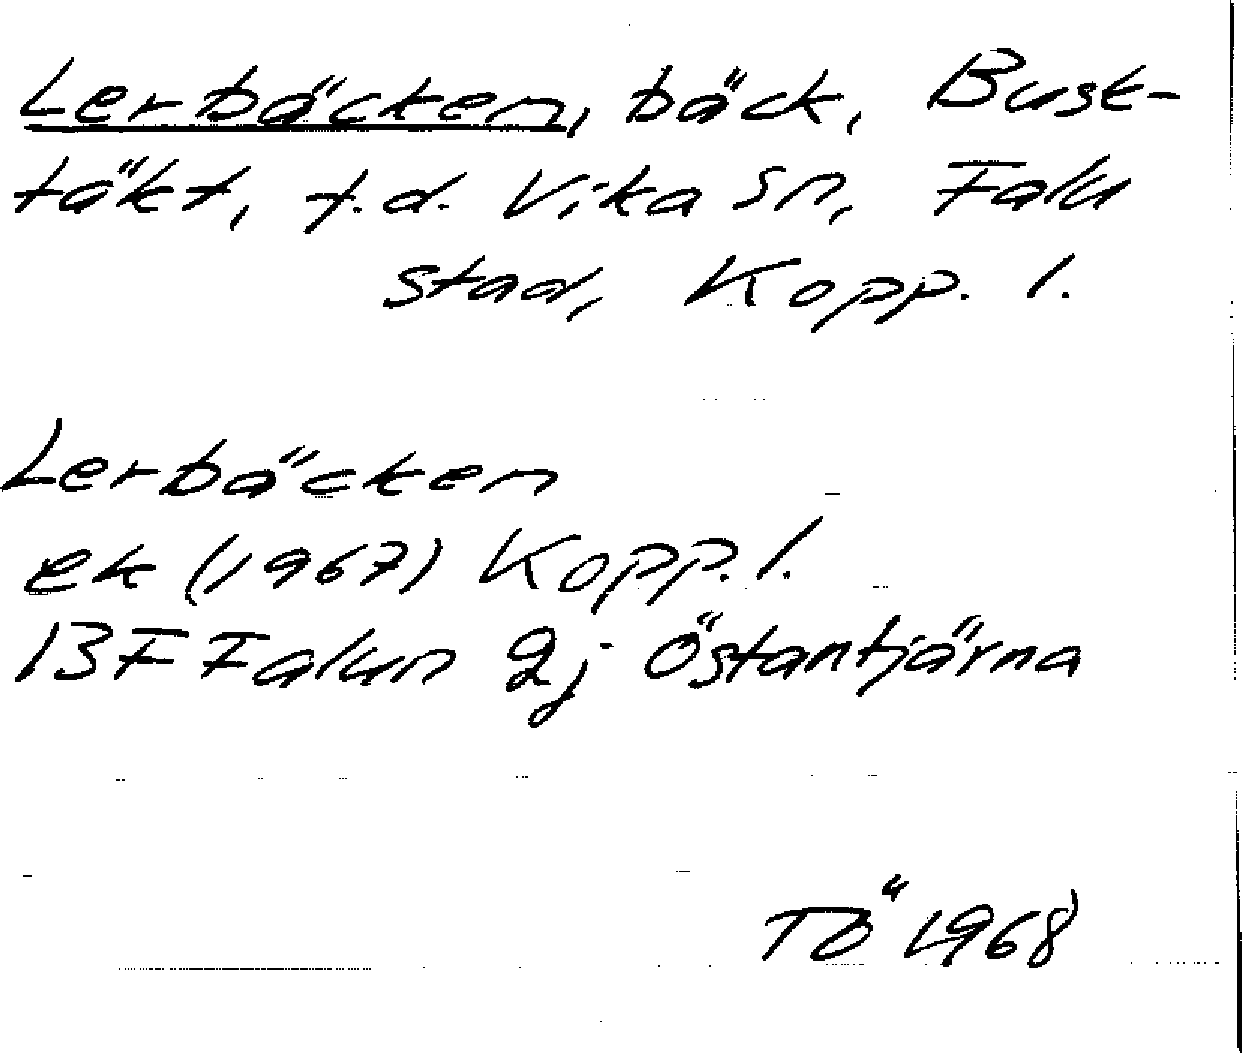 Lerbäcken, bäck, Busk-
täkt, f.d. Vika sn, Falu
stad, Kopp. l.
Lerbäcken
ek (1967) Kopp. l.
13F Falun 2j Östantjärna
TÖ 1968